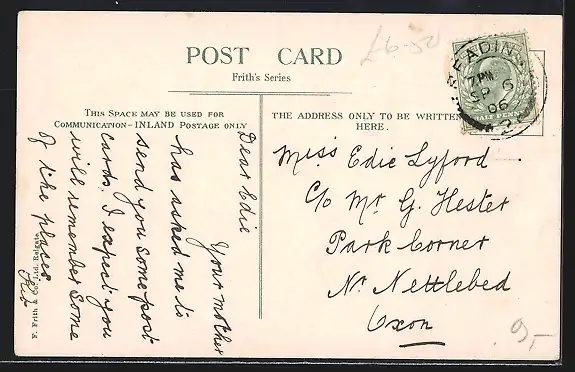 £6-50
POST CARD
Frith's Series
READING
7 PM
SP 6
06
HALF PENNY
THIS SPACE MAY BE USED FOR
COMMUNICATION—INLAND POSTAGE ONLY
THE ADDRESS ONLY TO BE WRITTEN
HERE.
Dear Edie
Your mother
has asked me to
send you some post
cards. I expect you
will remember some
of the places
F. Frith & Ltd. Reigate
Miss Edie Lyford
C/o Mr G. Hester
Park Corner
Nr Nettlebed
Oxon
9,-